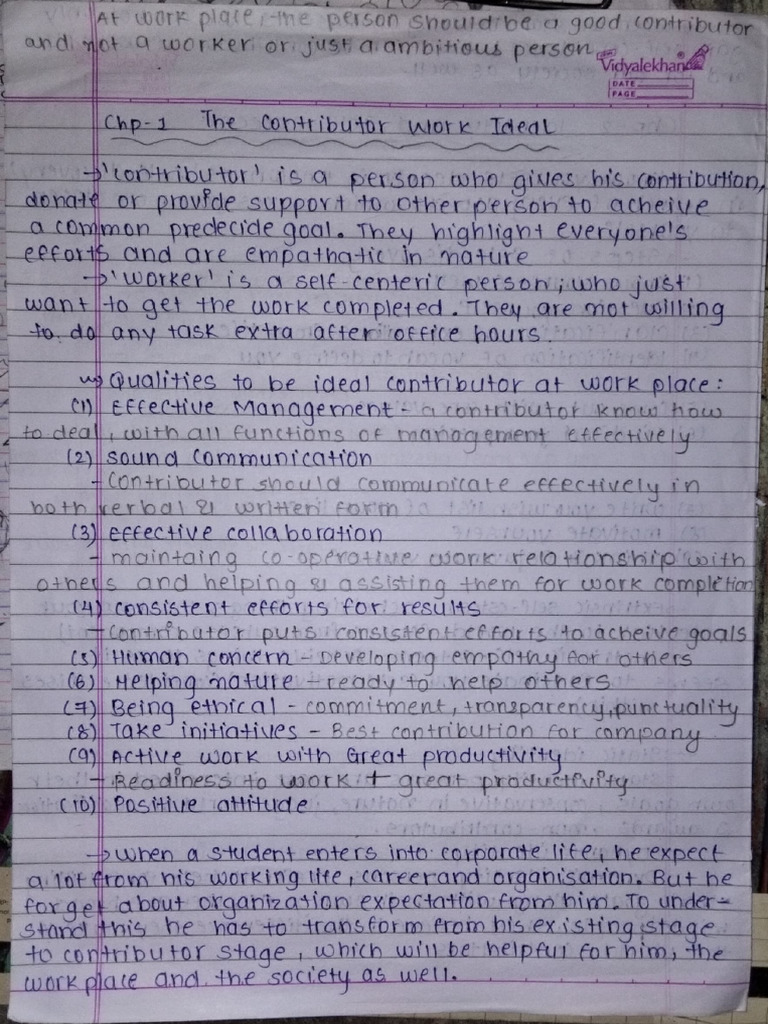 At work place, the person should be a good contributor
and not a worker or just a ambitious person
Vidyalekhan
DATE
PAGE
Chp-1 The Contributor Work Ideal
→ 'contributor' is a person who gives his contribution,
donate or provide support to other person to acheive
a common predecide goal. They highlight everyone's
efforts and are empathatic in nature
→ 'worker' is a self-centeric person, who just
want to get the work completed. They are not willing
to do any task extra after office hours.
Qualities to be ideal contributor at work place:
(1) Effective Management - a contributor know how
to deal, with all functions of management effectively
(2) Sound Communication
- Contributor should communicate effectively in
both verbal & written form
(3) Effective collaboration
- maintaing co-operative work relationship with
others and helping & assisting them for work completion
(4) consistent efforts for results
- Contributor puts consistent efforts to acheive goals
(5) Human concern - Developing empathy for others
(6) Helping nature - ready to help others
(7) Being ethical - commitment, transparency, punctuality
(8) Take initiatives - Best contribution for company
(9) Active work with Great productivity
- Readiness to work + great productivity
(10) Positive attitude
→ when a student enters into corporate life, he expect
a lot from his working life, career and organisation. But he
forget about organization expectation from him. To under-
stand this he has to transform from his existing stage
to contributor stage, which will be helpful for him, the
work place and the society as well.